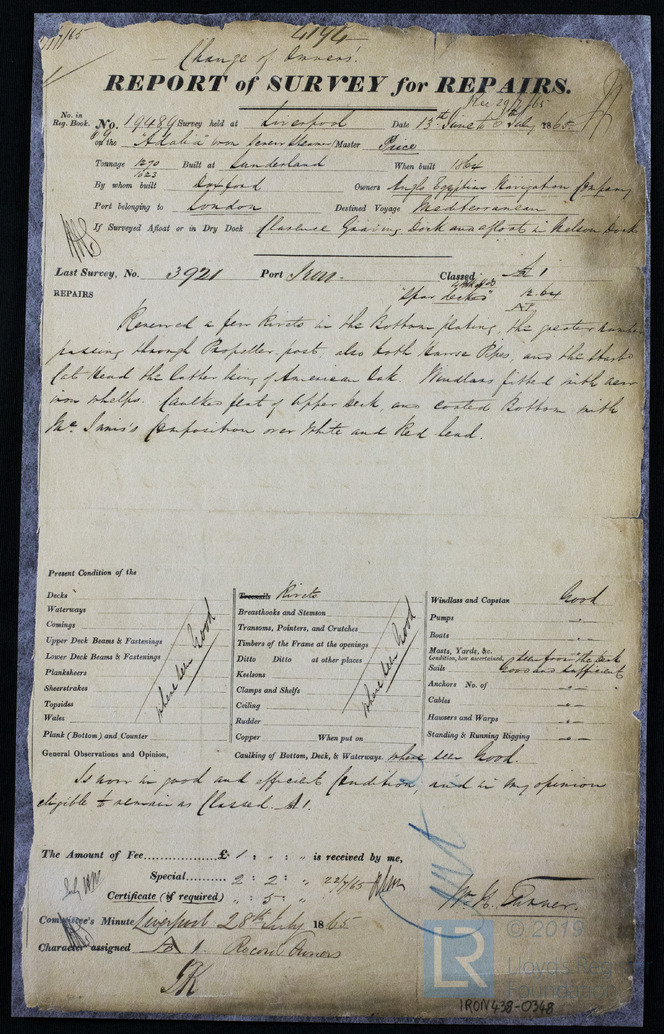 4194
Change of Owners.
REPORT of SURVEY for REPAIRS.
Rec 29/7/65
No. in Reg. Book. No. 19489 Survey held at Liverpool Date 13th June to 8th July 1865
on the "Adalia" Iron Screw Steamer Master Price
Tonnage 1270 Built at Sunderland When built 1864
1623
By whom built Doxford Owners Anglo Egyptian Navigation Company
Port belonging to London Destined Voyage Mediterranean
If Surveyed Afloat or in Dry Dock Clarence Graving Dock and afloat in Nelson Dock
Last Survey, No. 3921 Port Iron. Classed A 1
"Spar Decked" 12.64
REPAIRS
Renewed a few Rivets in the Bottom plating, the greater number
passing through Propeller post, also both Hawse Pipes, and the Starbd
Cat Head the latter being of American Oak. Windlass fitted with new
iron whelps. Caulked flat of Upper Deck, and coated Bottom with
Mc Innis's Composition over White and Red lead.
Present Condition of the
Decks
Waterways
Comings
Upper Deck Beams & Fastenings
Lower Deck Beams & Fastenings
Planksheers
Sheerstrakes
Topsides
Wales
Plank (Bottom) and Counter
where seen Good
Treenails Rivets
Breasthooks and Stemson
Transoms, Pointers, and Crutches
Timbers of the Frame at the openings
Ditto Ditto at other places
Keelsons
Clamps and Shelfs
Ceiling
Rudder
Copper When put on
where seen Good
Windlass and Capstan Good
Pumps "
Boats "
Masts, Yards, &c. seen from the deck
Condition, how ascertained,
Sails Good and sufficient
Anchors No. of "
Cables "
Hawsers and Warps "
Standing & Running Rigging "
General Observations and Opinion, Caulking of Bottom, Deck, & Waterways where seen Good.
Is now in good and efficient Condition, and in my opinion
eligible to remain as Classed A1.
The Amount of Fee............... £ 1 : " : " is received by me,
Special........ 2 : 2 : " 22/7/65
Certificate (if required) " : 5 : "
Wm. H. Turner.
Committee's Minute Liverpool 28th July 1865
Character assigned A 1. Record Owners
© 2019
LR
Lloyd's Register
Foundation
IRON438-0348